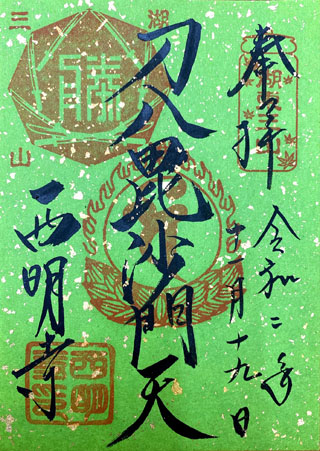 奉拝
令和二年
十一月十九日
刀八毘沙門天
西明寺
湖
三
山
藤